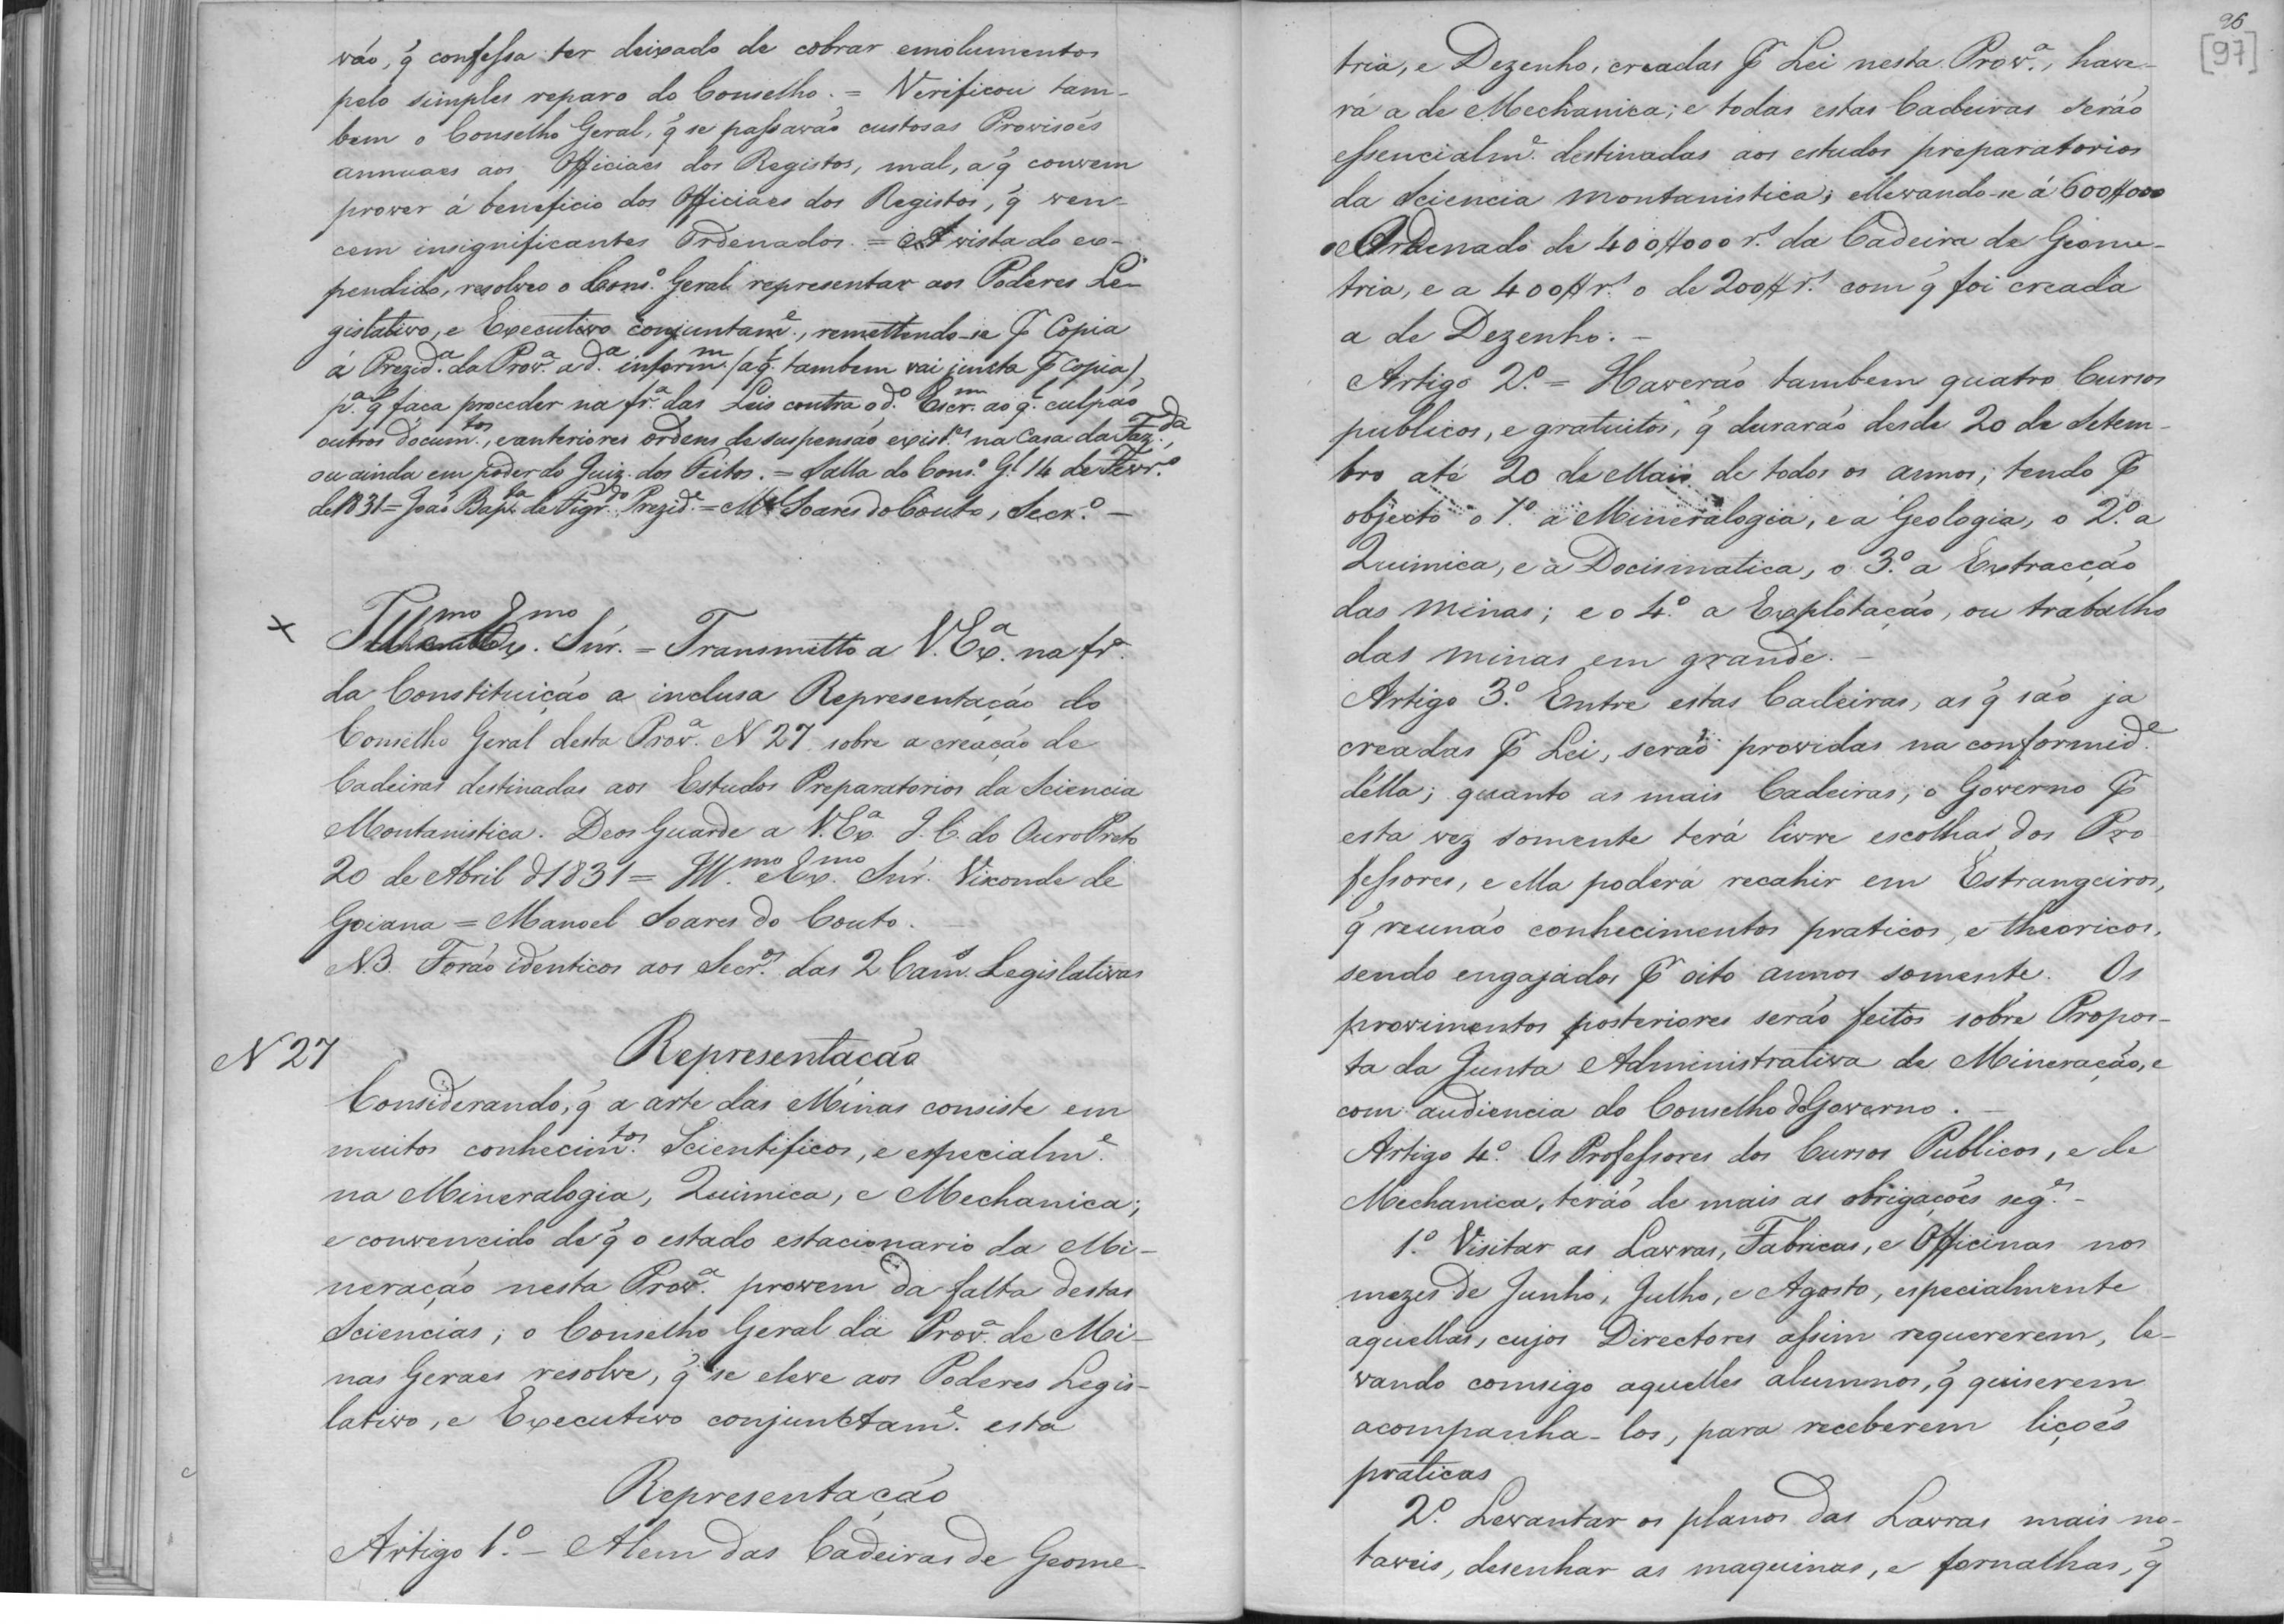 vão, q̃ confessa ter deixado de cobrar emolumentos
pelo simples reparo do Conselho. = Verificou tam-
bem o Conselho Geral, q̃ se passavão custosas Provisões
annuaes aos Officiaes dos Registos, mal, a q̃ convem
prover á beneficio dos Officiaes dos Registos, q̃ ven-
cem insignificantes Ordenados. = A' vista do ex-
pendido, resolveo o Cons.º Geral representar aos Poderes Le-
gislativo, e Executivo conjuntam.e, remettendo-se P Copia
á Prezid.a da Prov.a a d.a inform.m (a q.l tambem vai juncta P copia)
p.a q̃ faça proceder na fr.a das Leis contra o d.º Escr.m ao q.l culpão
outros docum.tos, e anteriores ordens de suspensão exist.es na Casa da Faz.da,
ou ainda em poder do Juiz dos Feitos. = Salla do Cons.º G.l 14 de Fevr.º
de 1831 = João Bap.ta de Figr.do Prezid.e = M.el Soares do Couto, Secr.º —
× Ill.mo Ex.mo Snr. = Transmitto a V. Ex.a na fr.a
da Constituição a inclusa Representação do
Conselho Geral desta Prov.a N 27 sobre a creação de
Cadeiras destinadas aos Estudos Preparatorios da Sciencia
Montanistica. Deos Guarde a V. Ex.a I. C. do Ouro Preto
20 de Abril d 1831 = Ill.mo e Ex.mo Snr. Visconde de
Goiana = Manoel Soares do Couto. —
N.B. Forão identicos aos Secr.os das 2 Cam.s Legislativas
N 27 Representação
Considerando, q̃ a arte das Minas consiste em
muitos conhecim.tos Scientificos, e especialm.e
na Mineralogia, Quimica, e Mechanica;
e convencido de q̃ o estado estacionario da Mi-
neração nesta Prov.a provem da falta destas
Sciencias; o Conselho Geral da Prov.a de Mi-
nas Geraes resolve, q̃ se eleve aos Poderes Legis-
lativo, e Executivo conjunctam.e esta
Representação
Artigo 1.º — Alem das Cadeiras de Geome-
96
[97]
tria, e Dezenho, creadas P Lei nesta Prov.a, have-
rá a de Mechanica; e todas estas Cadeiras serão
essencialm.e destinadas aos estudos preparatorios
da Sciencia montanistica; ellevando-se á 600$000
o Ordenado de 400$000 r.s da Cadeira de Geome-
tria, e a 400$ r.s o de 200$ r.s com q̃ foi creada
a de Dezenho. —
Artigo 2.º = Haverão tambem quatro Cursos
publicos, e gratuitos, q̃ durarão desde 20 de Setem-
bro até 20 de Maio de todos os annos; tendo P
objecto o 1.º a Mineralogia, e a Geologia, o 2.º a
Quimica, e a Docismatica, o 3.º a Extracção
das minas; e o 4.º a Explotação, ou trabalho
das minas em grande. —
Artigo 3.º Entre estas Cadeiras, as q̃ são ja
creadas P Lei, serão providas na conformid.e
d'ella; quanto as mais Cadeiras, o Governo P
esta vez somente terá livre escolha dos Pro
fessores, e ella poderá recahir em Estrangeiros,
q̃ reunão conhecimentos praticos, e theoricos,
sendo engajados P oito annos somente. Os
provimentos posteriores serão feitos sobre Propos-
ta da Junta Administrativa de Mineração, e
com audiencia do Conselho do Governo. —
Artigo 4.º Os Professores dos Cursos Publicos, e de
Mechanica, terão de mais as obrigações seg.es —
1.º Visitar as Lavras, Fabricas, e Officinas nos
mezes de Junho, Julho, e Agosto, especialmente
aquellas, cujos Directores assim requererem, le-
vando comsigo aquelles alumnos, q̃ quiserem
acompanha-los, para receberem lições
praticas
2.º Levantar os planos das Lavras mais no-
taveis, desenhar as maquinas, e fornalhas, q̃